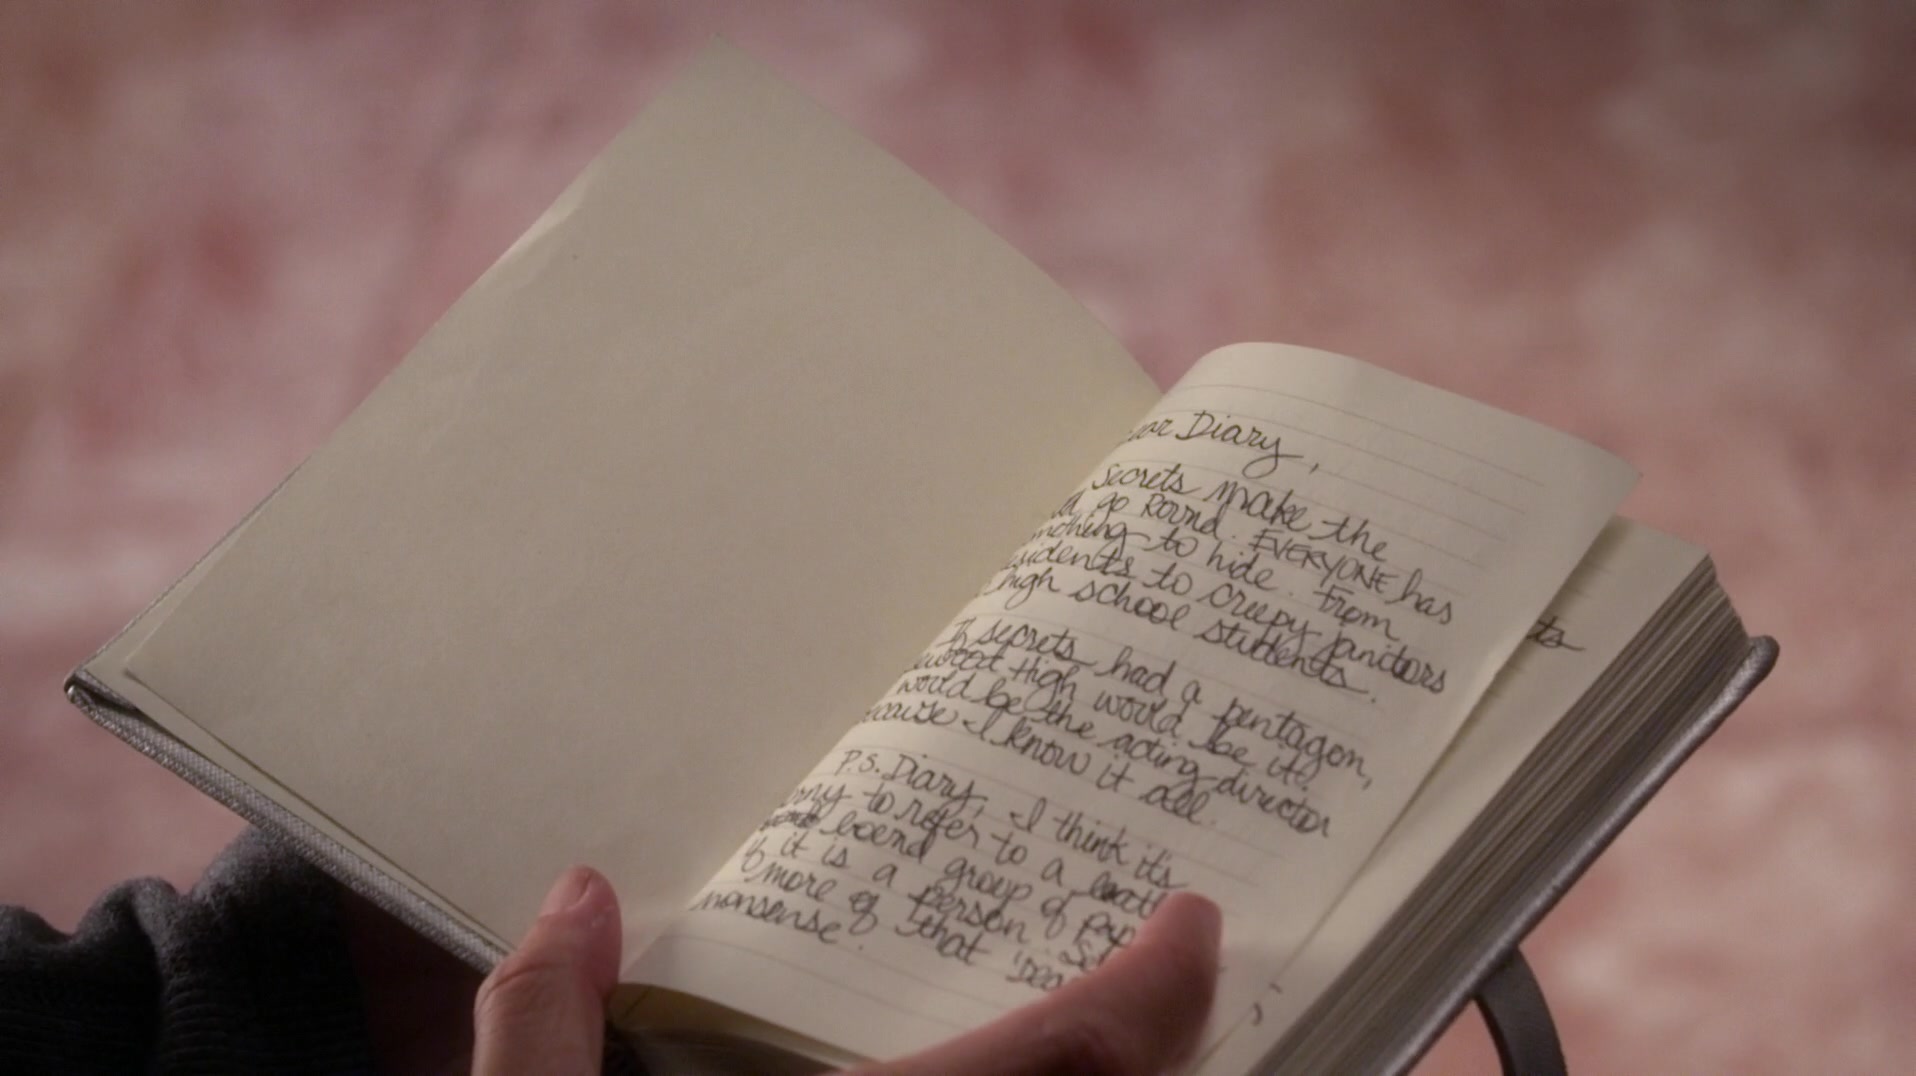 ar Diary,
Secrets make the
go Round. EVERYONE has
mething to hide. From
sidents to creepy janitors
high school students.
If secrets had a pentagon,
ewood High would be it.
would be the acting director
ecause I know it all.
P.S. Diary, I think it's
rny to refer to a leath
bound group of pap
if it is a person. So
more of that 'Dea
nonsense.
ts